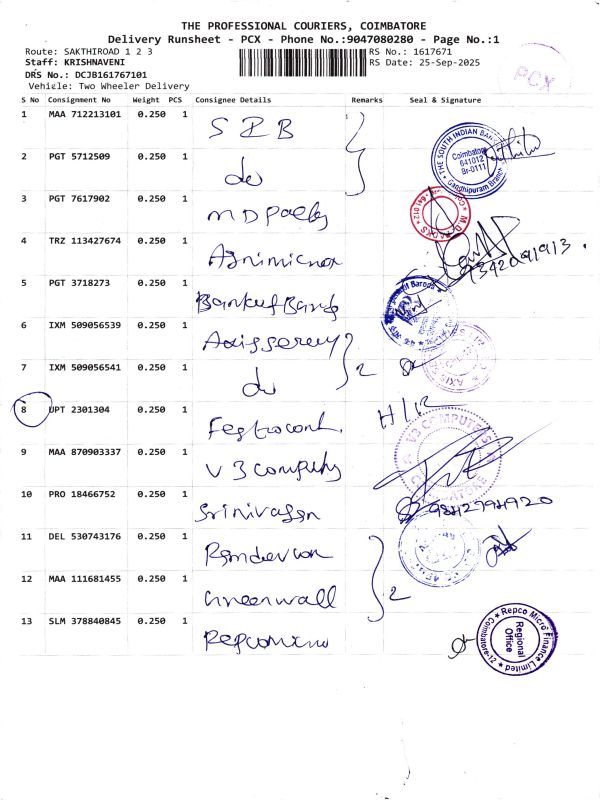 THE PROFESSIONAL COURIERS, COIMBATORE
Delivery Runsheet - PCX - Phone No.:9047080280 - Page No.:1
Route: SAKTHIROAD 1 2 3
RS No.: 1617671
Staff: KRISHNAVENI
RS Date: 25-Sep-2025
DRS No.: DCJB161767101
Vehicle: Two Wheeler Delivery
PCX
S No Consignment No Weight PCS Consignee Details Remarks Seal & Signature
1 MAA 712213101 0.250 1 S I B
2 PGT 5712509 0.250 1 do
THE SOUTH INDIAN BANK Coimbatore 641012 Br-0111 Gandhipuram Branch
3 PGT 7617902 0.250 1 M D
4 TRZ 113427674 0.250 1
9342091913.
5 PGT 3718273 0.250 1 Bank of Baroda
6 IXM 509056539 0.250 1
7 IXM 509056541 0.250 1 do 2
8 UPT 2301304 0.250 1 H/R
9 MAA 870903337 0.250 1 V 3
V3 COMPUTERS
10 PRO 18466752 0.250 1 Srinivasan
11 DEL 530743176 0.250 1
12 MAA 111681455 0.250 1 Greenwall 2
13 SLM 378840845 0.250 1
Repco Micro Finance Limited Regional Office Coimbatore-12